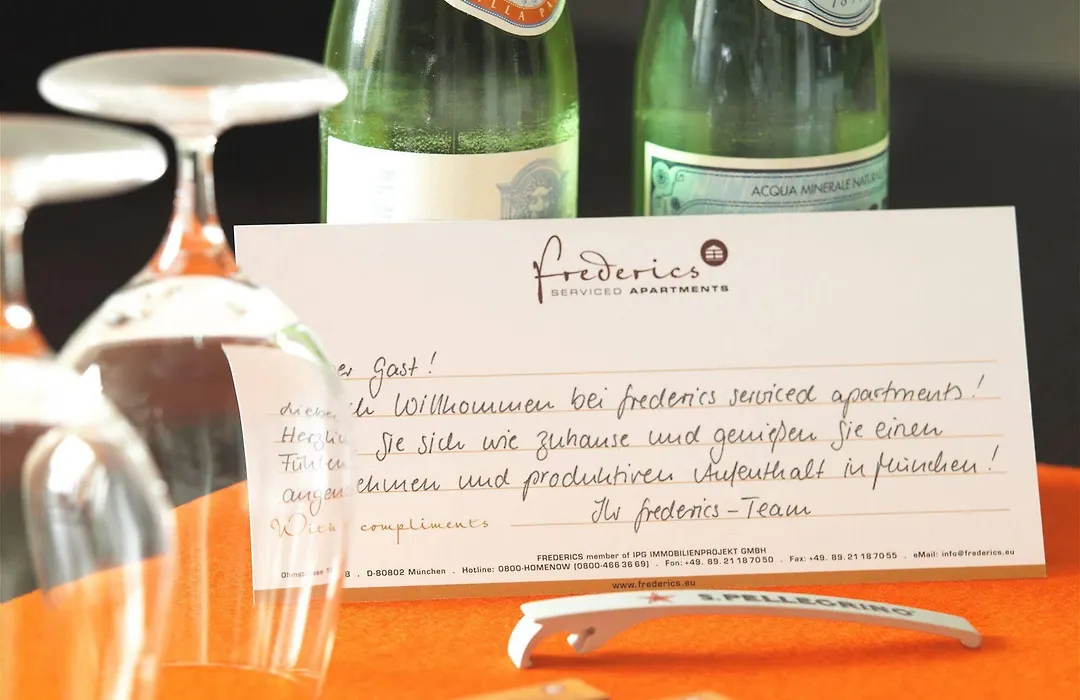 LLA PA
ACQUA MINERALE NATURAL
frederics
SERVICED APARTMENTS
Lieber Gast!
Herzlich Willkommen bei frederics serviced apartments!
Fühlen Sie sich wie zuhause und genießen Sie einen
angenehmen und produktiven Aufenthalt in München!
With compliments
Ihr frederics-Team
FREDERICS member of IPG IMMOBILIENPROJEKT GMBH
D-80802 München . Hotline: 0800-HOMENOW (0800-466 36 69) . Fon: +49. 89. 21 18 70 50 . Fax: +49. 89. 21 18 70 55 . eMail: info@frederics.eu
www.frederics.eu
S.PELLEGRINO